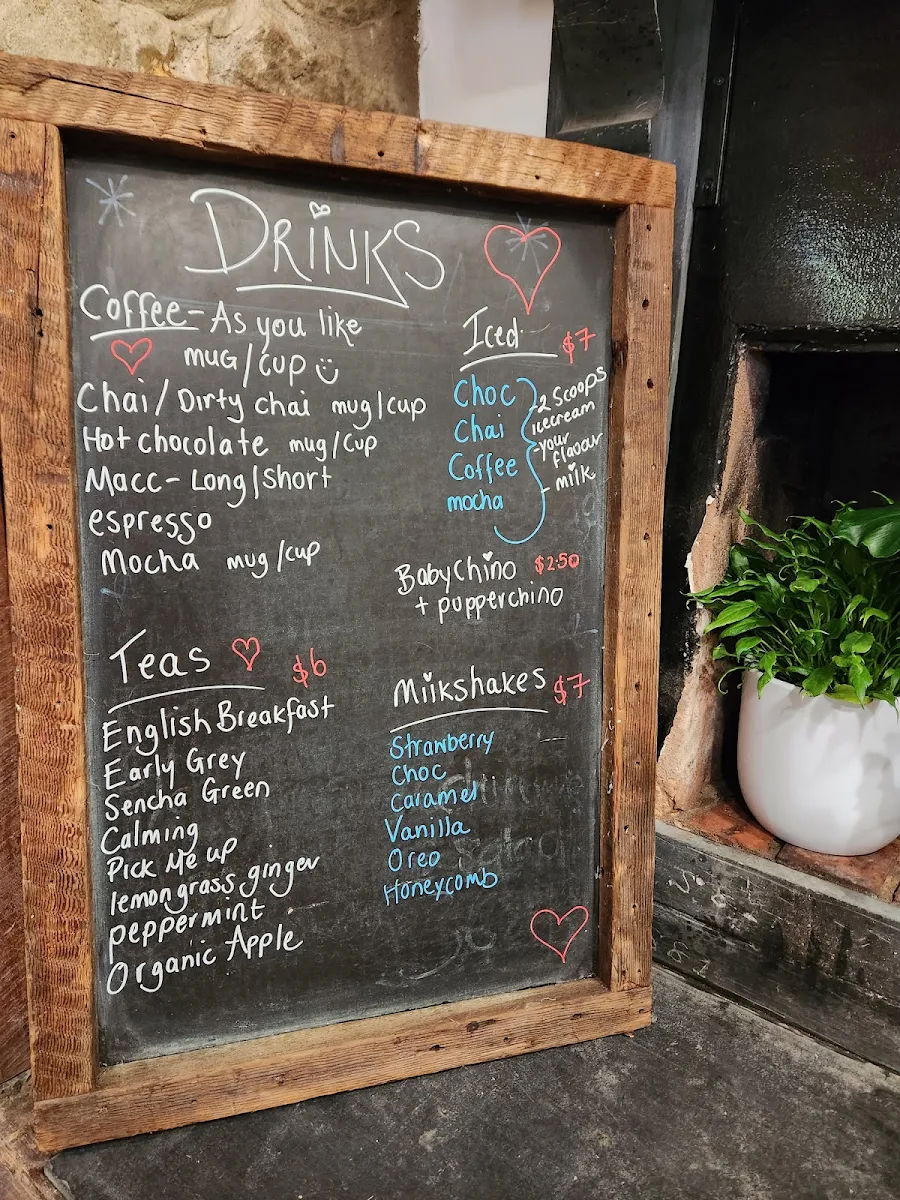 DRINKS
Coffee - As you like
mug/cup
Chai / Dirty chai mug/cup
Hot chocolate mug/cup
Macc - Long/Short
espresso
Mocha mug/cup
Teas $6
English Breakfast
Early Grey
Sencha Green
Calming
Pick Me up
lemongrass ginger
peppermint
Organic Apple
Iced $7
Choc
Chai
Coffee
mocha
- 2 Scoops
icecream
- your
flavour
- milk
BabyChino $2.50
+ pupperchino
Milkshakes $7
Strawberry
Choc
Caramel
Vanilla
Oreo
Honeycomb